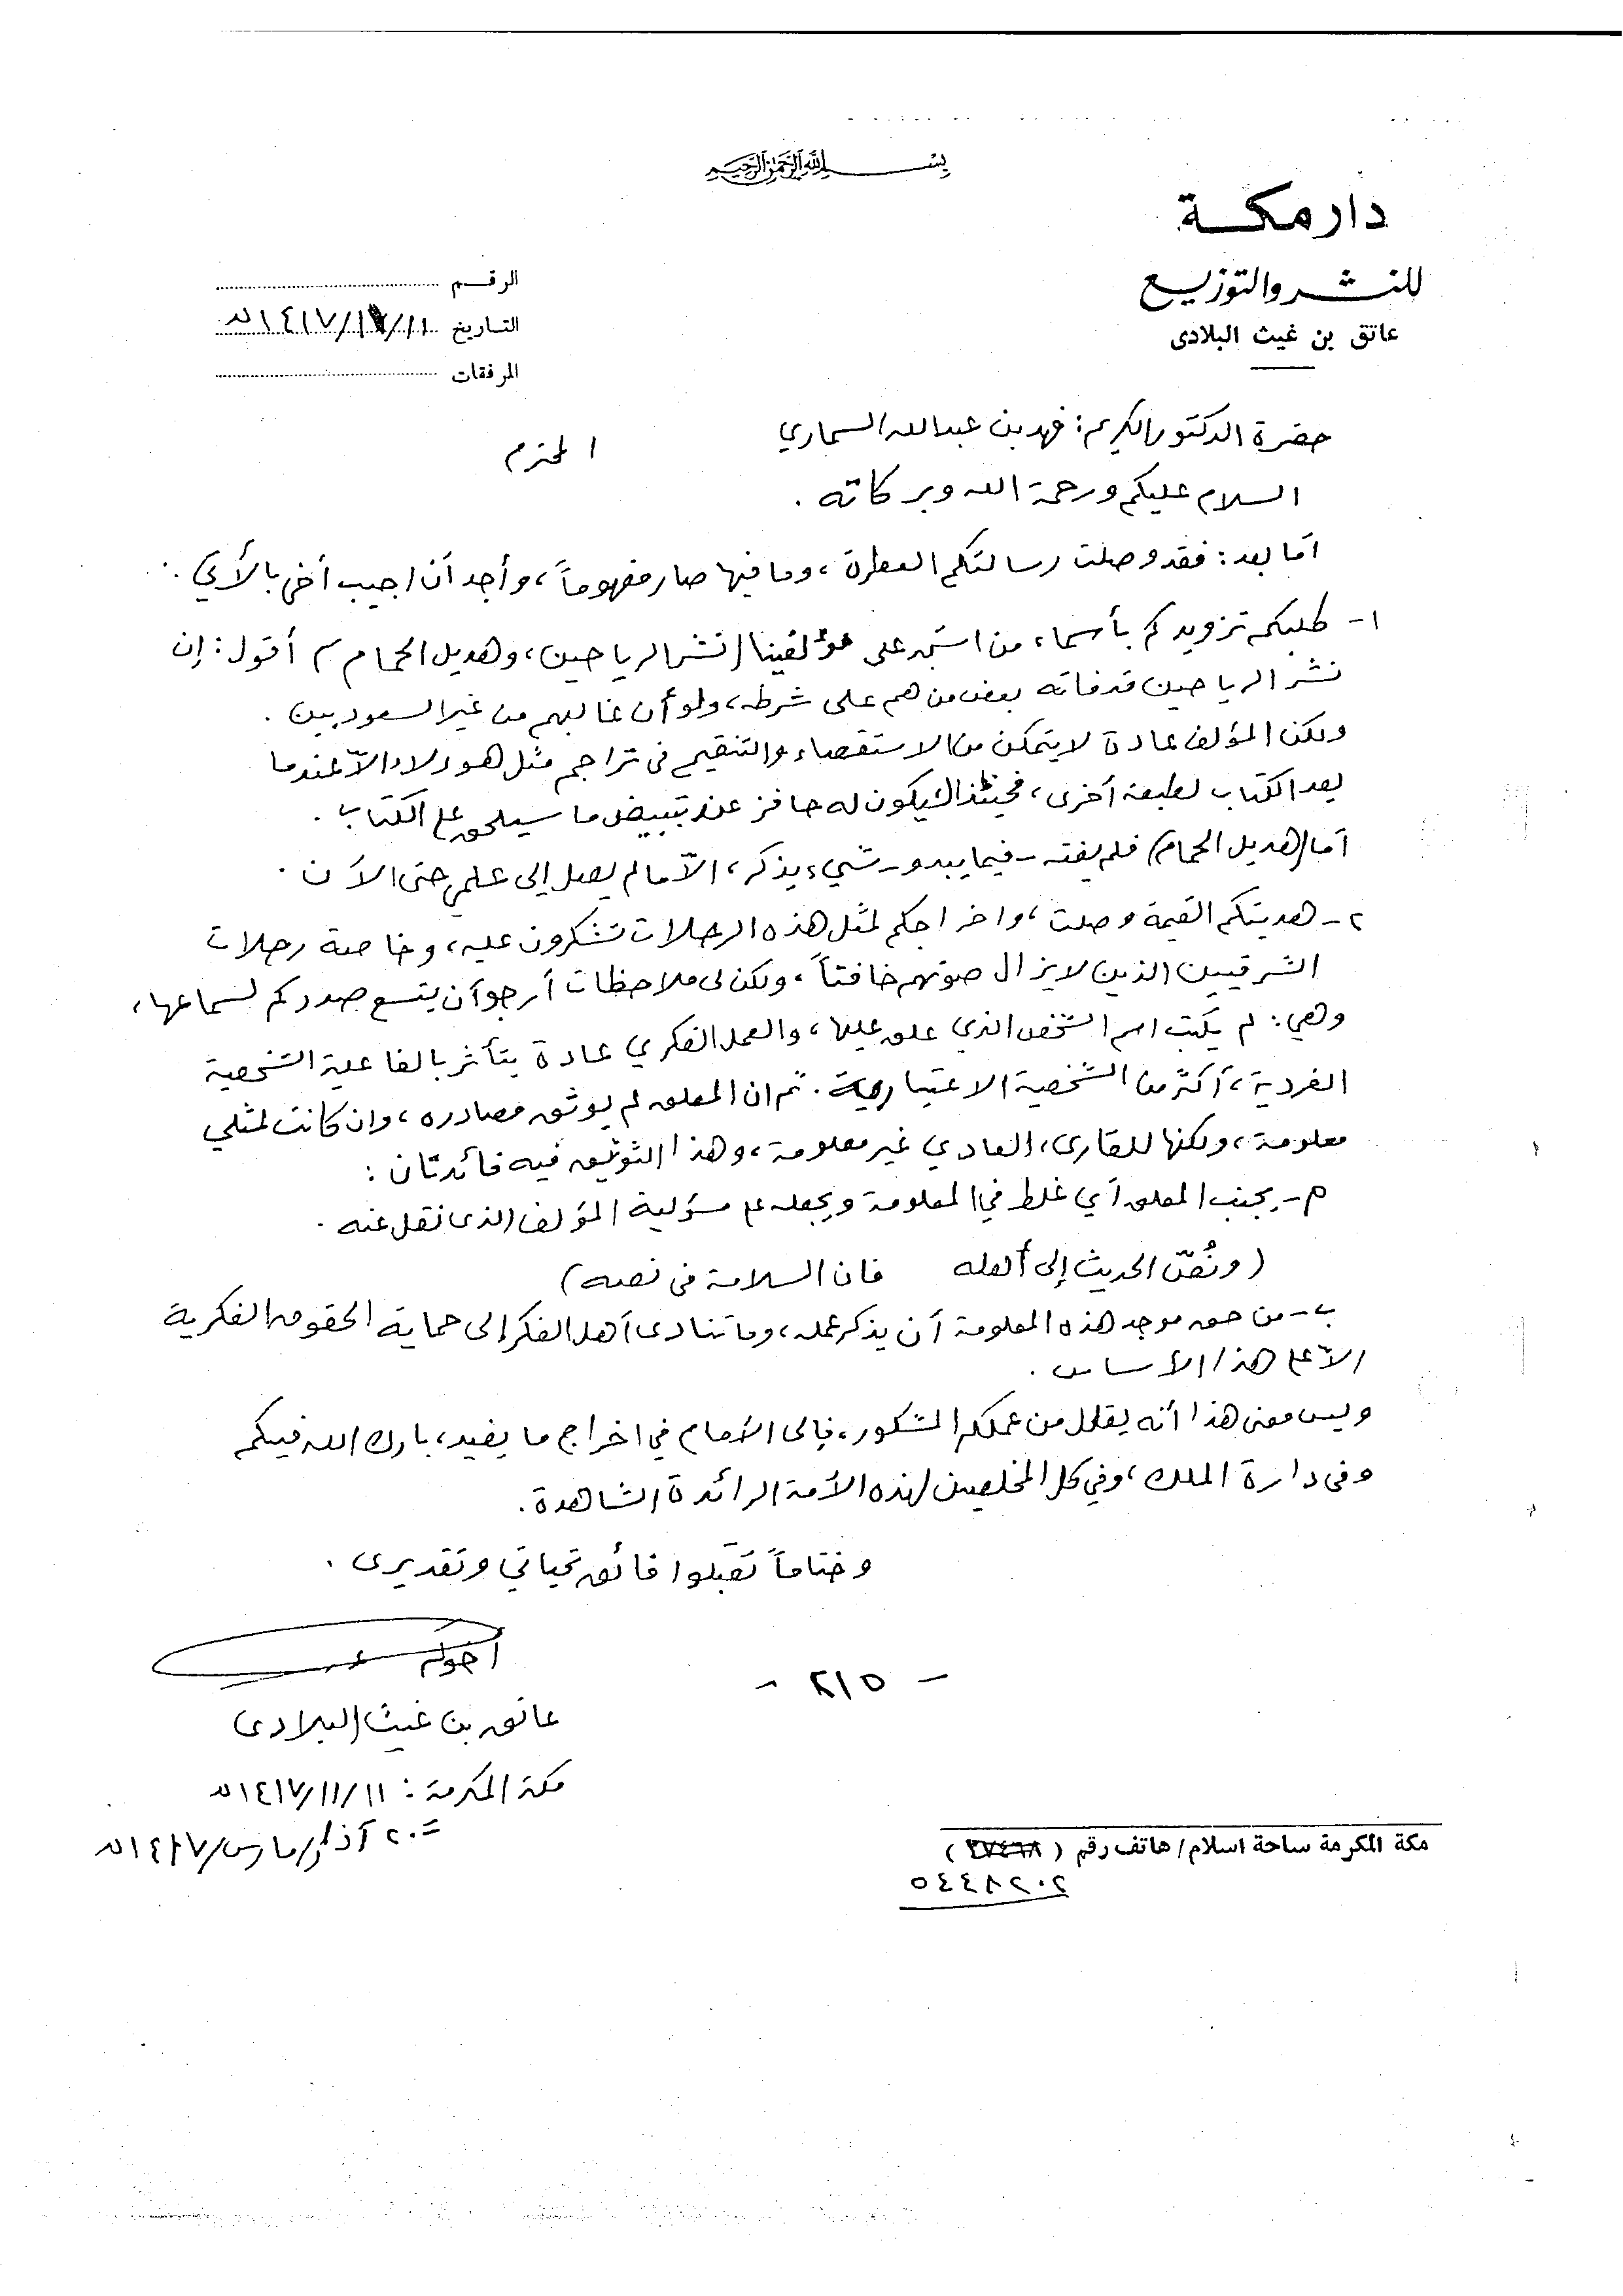 بسم الله الرحمن الرحيم
دار مكة
للنشر والتوزيع
عاتق بن غيث البلادى
الرقم
التاريخ ١١/١١/١٤١٧هـ
المرفقات
حضرة الدكتور الكريم: فهد بن عبدالله السماري المحترم
السلام عليكم ورحمة الله وبركاته .
أما بعد: فقد وصلت رسالتكم العطرة، وما فيها صار مفهوماً، وأجد أن اجيب أخي بالآتي :
١- طلبكم تزويدكم بأسماء من استجد على مؤلفينا (نشر الرياحين، وهديل الحمام) أقول: إن
نشر الرياحين قد فاته بعض من هم على شرطه، ولو أن غالبهم من غير السعوديين .
ولكن المؤلف عادة لا يتمكن من الاستقصاء والتنقيح فى تراجم مثل هؤلاء الاّ عندما
يعد الكتاب لطبعة أخرى، فحينئذ يكون له حافز عند تبييض ما سيلحق على الكتاب .
أما (هديل الحمام) فلم يفته - فيما يبدو - شيء يذكر، الاّ ما لم يصل إلى علمي حتى الآن .
٢- هديتكم القيمة وصلت، واخراجكم لمثل هذه الرحلات تشكرون عليه، وخاصة رحلات
الشرقيين الذين لا يزال صوتهم خافتاً، ولكن لى ملاحظات أرجو أن يتسع صدركم لسماعها،
وهي: لم يكتب اسم الشخص الذي علق عليها، والعمل الفكري عادة يتأثر بالفاعلية الشخصية
الفردية، أكثر من الشخصية الاعتبارية. ثم ان المعلق لم يوثق مصادره، وان كانت لمثلي
معلومة، ولكنها للقارىء العادي غير معلومة، وهذا التوثيق فيه فائدتان :
م- يجنب المعلق أي غلط في المعلومة ويجعله على مسؤلية المؤلف الذى نقل عنه .
(ونُصّ الحديث إلى أهله فان السلامة فى نصه)
ب- من حق موجد هذه المعلومة أن يذكر عمله، وما تنادى أهل الفكر إلى حماية الحقوق الفكرية
الاّ على هذا الأساس .
وليس معنى هذا أنه يقلل من عملكم المشكور، فإلى الأمام في اخراج ما يفيد، بارك الله فيكم
وفى دارة الملك، وفي كل المخلصين لهذه الأمة الرائدة الشاهدة.
وختاماً تقبلوا فائق تحياتي وتقديرى .
أخوكم
- ٢١٥ -
عاتق بن غيث البلادى
مكة المكرمة: ١١/١١/١٤١٧هـ
= ٢٠ آذار/مارس/١٤١٧هـ
مكة المكرمة ساحة اسلام/هاتف رقم (٢٧٤٦٨)
٥٤٤٨٢٠٢